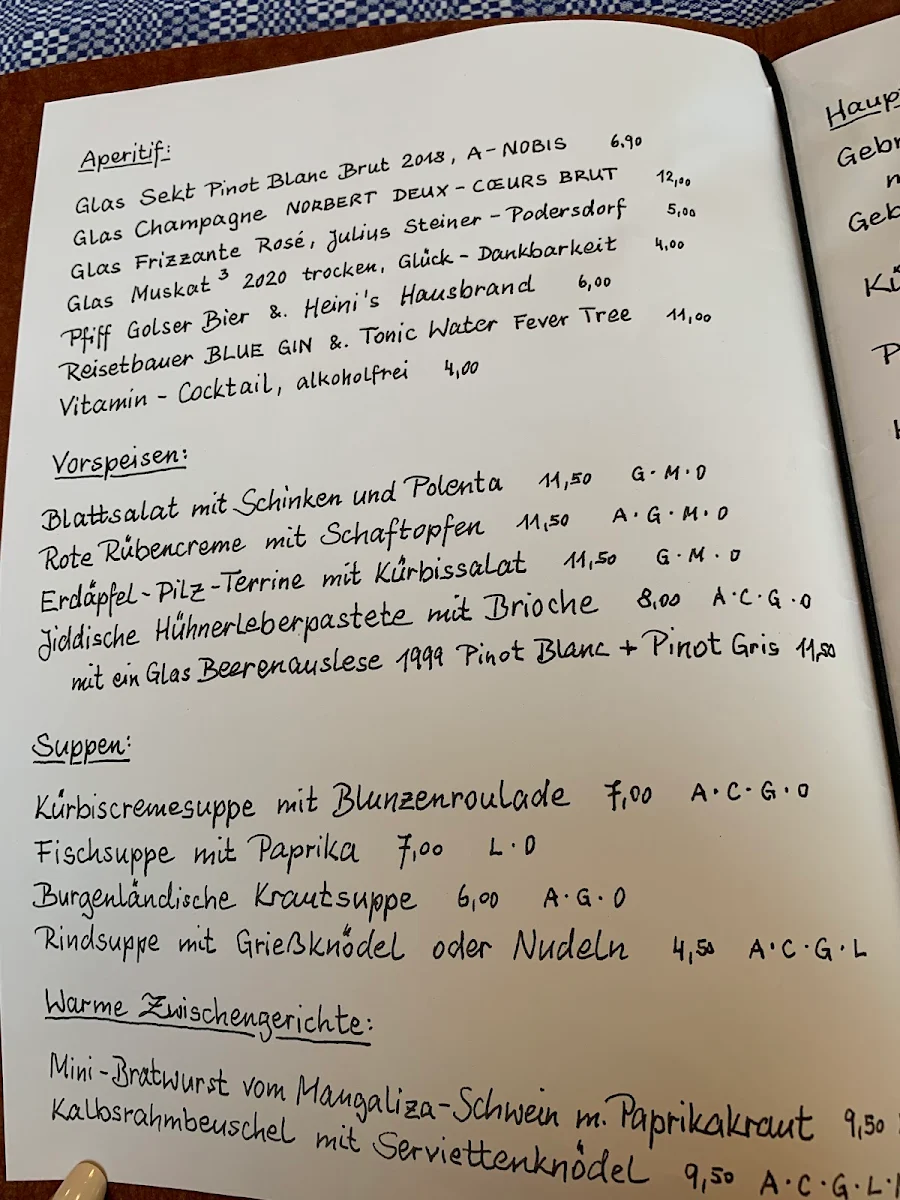 Aperitif:
Glas Sekt Pinot Blanc Brut 2018, A-NOBIS 6,90
Glas Champagne NORBERT DEUX-CŒURS BRUT 12,00
Glas Frizzante Rosé, Julius Steiner-Podersdorf 5,00
Glas Muskat³ 2020 trocken, Glück-Dankbarkeit 4,00
Pfiff Golser Bier &. Heini's Hausbrand 6,00
Reisetbauer BLUE GIN &. Tonic Water Fever Tree 11,00
Vitamin-Cocktail, alkoholfrei 4,00
Vorspeisen:
Blattsalat mit Schinken und Polenta 11,50 G·M·O
Rote Rübencreme mit Schaftopfen 11,50 A·G·M·O
Erdäpfel-Pilz-Terrine mit Kürbissalat 11,50 G·M·O
Jiddische Hühnerleberpastete mit Brioche 8,00 A·C·G·O
mit ein Glas Beerenauslese 1999 Pinot Blanc + Pinot Gris 11,50
Suppen:
Kürbiscremesuppe mit Blunzenroulade 7,00 A·C·G·O
Fischsuppe mit Paprika 7,00 L·D
Burgenländische Krautsuppe 6,00 A·G·O
Rindsuppe mit Grießknödel oder Nudeln 4,50 A·C·G·L
Warme Zwischengerichte:
Mini-Bratwurst vom Mangaliza-Schwein m. Paprikakraut 9,50
Kalbsrahmbeuschel mit Serviettenknödel 9,50 A·C·G·L·
Haup
Gebr
m
Geb
Kü
P